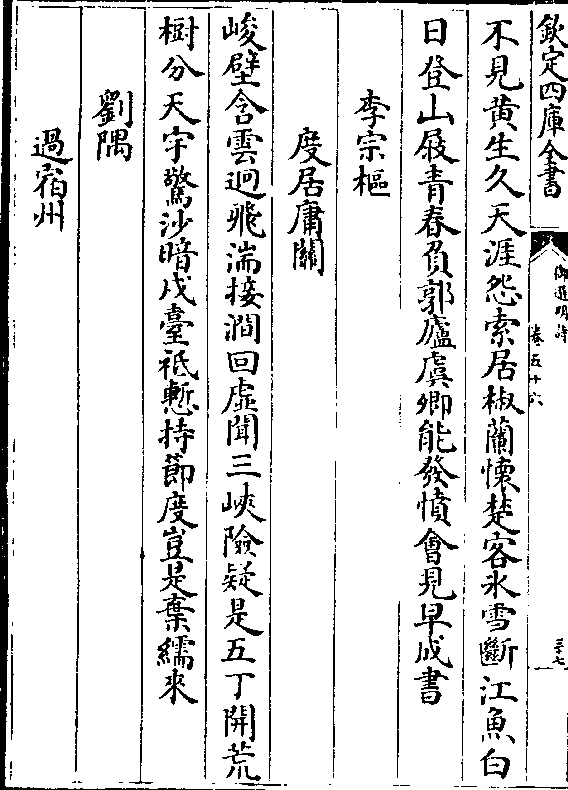 欽定四庫全書
御選明詩
卷五十六
三十七
不見黃生久天涯怨索居椒蘭懷楚客氷雪斷江魚白
日登山屐青春負郭廬虞卿能發憤會見早成書
李宗樞
度居庸關
峻壁含雲迥飛湍接澗回虛聞三峽險疑是五丁開荒
樹分天宇驚沙暗戍臺祗慙持節度豈是棄繻來
劉隅
過宿州